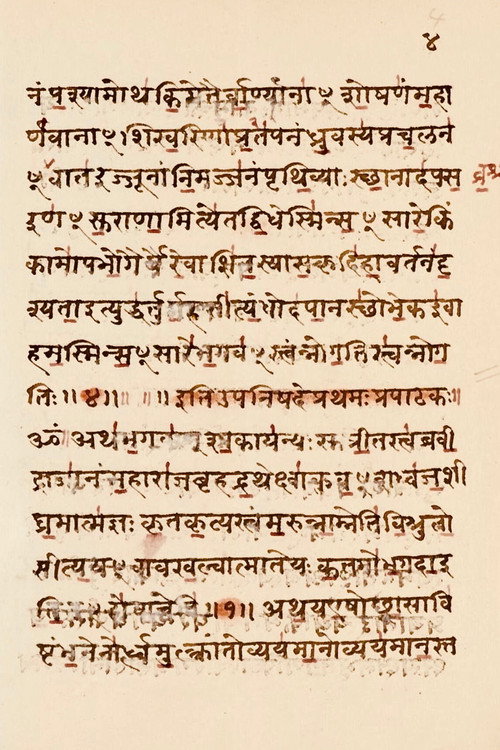 ४
नं पश्यामोथ किमेतैर्वाण्यांना ँ शोषणं महा
र्णवाना ँ शिखरिणां प्रतपनं ध्रुवस्य प्रचलनं
ँ वातरज्जूनां निमज्जनं पृथिव्याः स्छानादपस
रण ँ सुराणामित्येतद्विधेस्मिन्स ँ सारे किं
कामोपभोगैर्यैरेवाशितस्यासकृदिहावर्तनं दृ
श्यता इत्युद्धर्तुमर्हसीत्यंधोदपानस्छो भेक इवा
हमस्मिन्स ँ सारे भगव ँ स्त्वंन्नो गतिस्त्वन्नो ग
तिः ॥ ४॥ ॥ ॥ इति उपनिषदि प्रथमः प्रपाठकः ॥
ॐ अथ भगवान् शाकायन्यः सुप्रीतस्त्वब्रवी
द्राजानं महाराज बृहद्रथेक्ष्वाकुव ँ शध्वजशी
घ्रमात्मज्ञः कृतकृत्यस्त्वं मरुन्नाम्नेति विश्रुतो
सीत्यय ँ वाव खल्वात्मा ते यः कतमो भगवा इ
ति ॥१॥ अथ य एषोछ्वासावि
ष्टंभनेनोर्ध्वमुत्क्रांतो व्ययमानोव्ययमानस्त